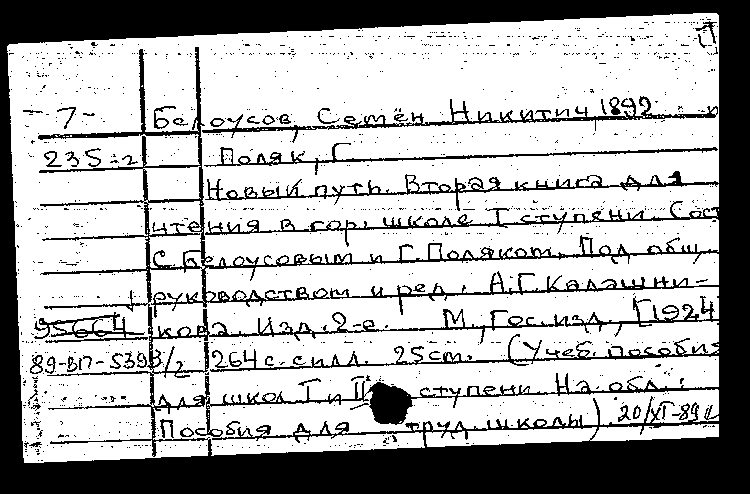 -7- Белоусов, Семён Никитич 1892 и
235:2 Поляк, Г.
Новый путь. Вторая книга для
чтения в гор. школе I ступени. Сост
С. Белоусовым и Г. Поляком. Под общ.
руководством и ред. А.Г. Калашни-
95664 кова. Изд. 2-е. М., Гос. изд., [1924
89-ВП-5393/2 264 с. с илл. 25 см. (Учеб. пособия
для школ I и II ступени. На обл.:
Пособия для труд. школы). 20/XI-89